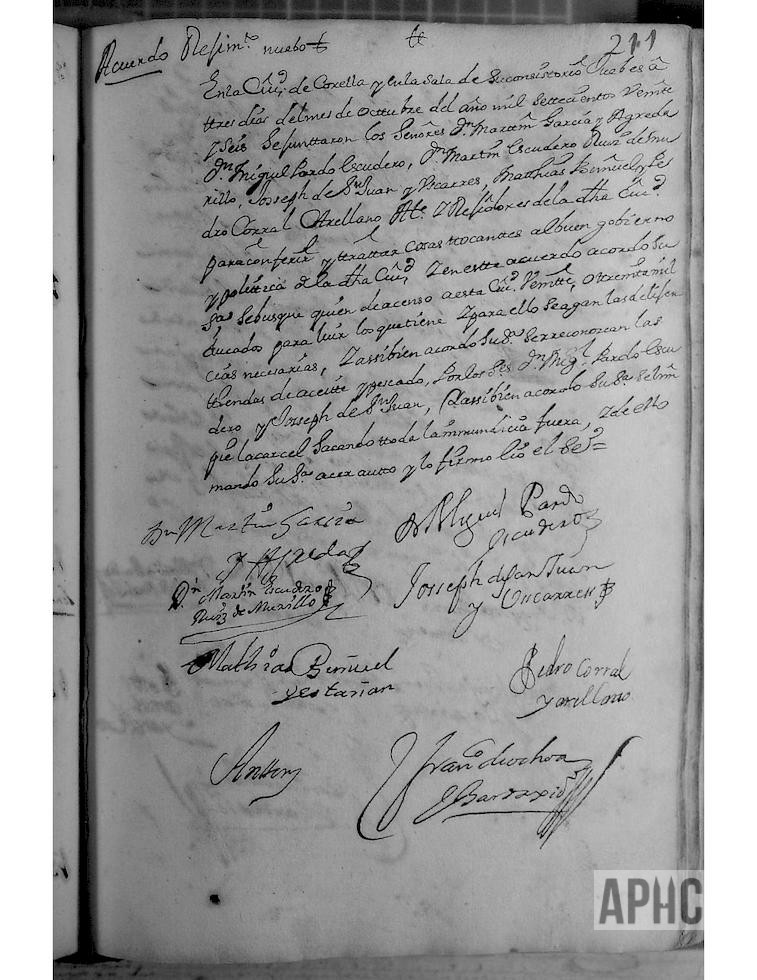 Acuerdo Resim.to nuebo te 211
En la Ciu.d de Corella y en la sala de su consistorio Juebes a
ttres dias del mes de octtubre del año mil settecientos Veintte
y seis se junttaron los Señores Dn. Marttin Garcia y Agreda
Dn. Miguel Pardo Escudero, Dn. Marttin Escudero Ruiz de Mu
rillo, Joseph de Sn. Juan y Vscarres, Matthias Biñuel y Pe
dro Corral Arellano Alc.e y Rexidores de la dha Ciu.d
para conferir y ttrattar cosas ttocanttes al buen gobierno
y polittica de la dha Ciu.d, Y en estte acuerdo acordo su
S.a se busque quien de a censo a esta Ciu.d Veintte, o ttreintta mil
Ducados para luir los que tiene y para ello se agan las deligen
cias necesarias, Y assibien acordo su S.a se rreconozcan las
ttiendas de aceitte y pescado, Por los S.es Dn. Mig.l Pardo Escu
dero y Joseph de Sn. Juan, Y assibien acordo su S.a se lim
pie la carcel sacando ttoda la inmundicia fuera, y de ello
mando su S.a acer autto y lo firmo con el se.rio
Dn Martin Garcia
y Agreda
Dn Miguel Pardo
Escudero
D.n Martin Escudero
Ruiz de Murillo
Joseph de San Juan
y Vscarres
Mathias Biñuel
y estañan
Pedro Corral
y arellano
Antemi
Fran.co de ochoa
APHC